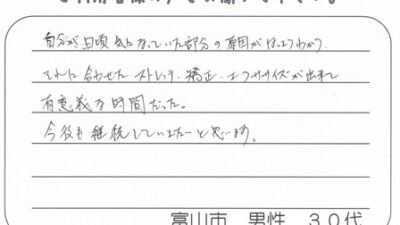 自分が日頃気になっていた部分の原因がはっきりわかり、
それに合わせたストレッチ、矯正、エクササイズが出来て
有意義な時間だった。
今後も継続していきたいと思います。
富山市 男性 30代